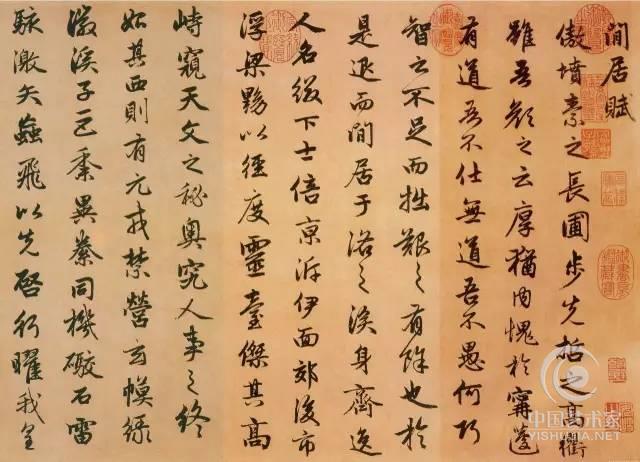 閒居賦
傲墳素之長圃步先哲之高衢
雖吾顏之云厚猶內愧於甯蘧
有道吾不仕無道吾不愚何巧
智之不足而拙艱之有餘也於
是退而閒居于洛之涘身齊逸
人名綴下士倍京泝伊面郊後市
浮梁黝以徑度靈臺傑其高
峙窺天文之秘奧究人事之終
始其西則有元戎禁營玄幙綠
徽溪子巨黍異絭同機礮石雷
駭激矢蝱飛以先啓行曜我皇
中国艺术家
YISHUJIA.NET